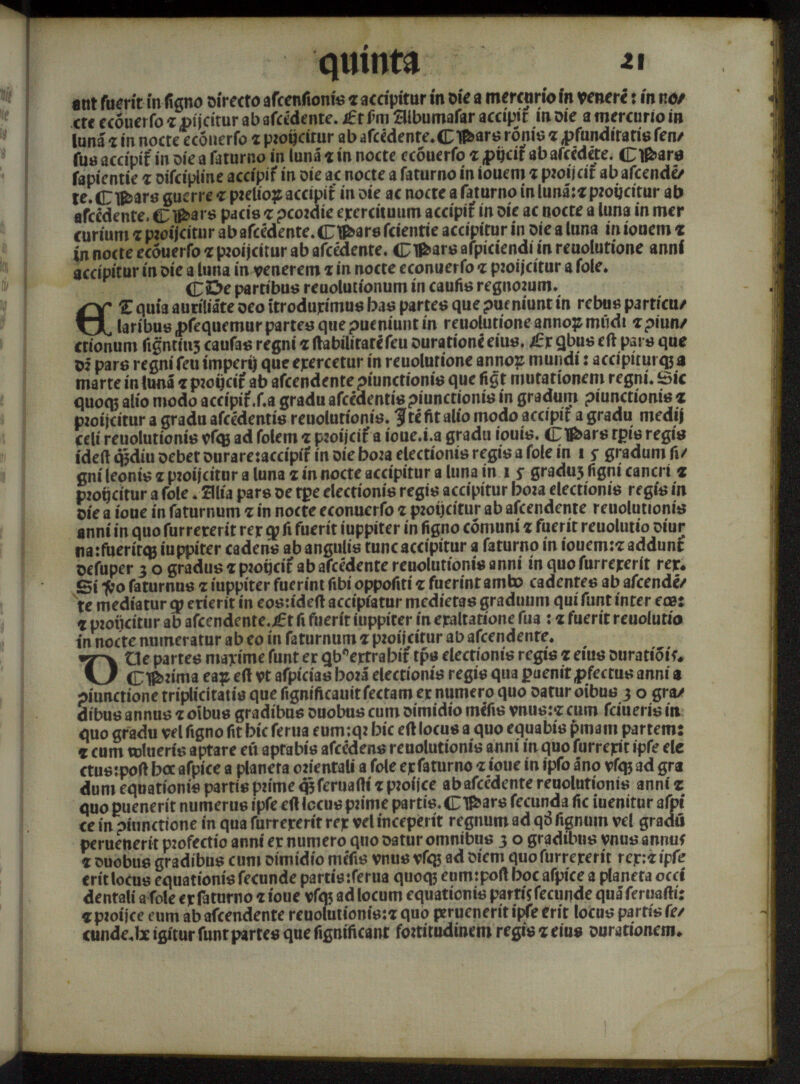 quinta 21
aut fuerit in signo directo ascensionis ⁊ accipitur in die a mercurio in venerẽ: in no/
cte ecõuerso ⁊ ꝓijcitur ab ascẽdente. Et ẜm Albumasar accipit̃ in die a mercurio in
lunã ⁊ in nocte ecõuerso ⁊ proijcitur ab ascẽdente. ¶ Pars rõnis ⁊ ꝓfunditatis sen/
sus accipit̃ in die a saturno in lunã ⁊ in nocte ecõuerso ⁊ ꝓijcit̃ ab ascẽdẽte. ¶ Pars
sapientie ⁊ discipline accipit̃ in die ac nocte a saturno in iouem ⁊ proijcit̃ ab ascendẽ/
te. ¶ Pars guerre ⁊ prelioꝝ accipit̃ in die ac nocte a saturno in lunã:⁊ proijcitur ab
ascẽdente. ¶ Pars pacis ⁊ ↄcordie exercituum accipit̃ in die ac nocte a luna in mer
curium ⁊ proijcitur ab ascẽdente. ¶ Pars scientie accipitur in die a luna in iouem ⁊
in nocte ecõuerso ⁊ proijcitur ab ascẽdente. ¶ Pars aspiciendi in reuolutione anni
accipitur in die a luna in venerem ⁊ in nocte econuerso ⁊ proijcitur a sole.
¶ De partibus reuolutionum in causis regnorum.
ET quia auxiliãte deo ĩtroduximus has partes que ↄueniunt in rebus particu/
laribus ꝓsequemur partes que ↄueniunt in reuolutione annoꝝ mũdi ⁊ ↄiun/
ctionum signantiuꝫ causas rẽgni ⁊ stabilitatẽ seu durationẽ eius. Ex qbus est pars que
dr̃ pars regni seu imperij que exercetur in reuolutione annoꝝ mundi: accipiturqꝫ a
marte in lunã ⁊ proijcit̃ ab ascendente ↄiunctionis que sigt̃ mutationem regni. Sic
quoqꝫ alio modo accipit̃.s.a gradu ascẽdentis ↄiunctionis in gradum ↄiunctionis ⁊
proijcitur a gradu ascẽdentis reuolutionis. Itẽ fit alio modo accipit̃ a gradu medij
celi reuolutionis vsqꝫ ad solem ⁊ proijcit̃ a ioue.i.a gradu iouis. ¶ Pars tpis regis
idest q̃diu debet durare:accipit̃ in die hora electionis regis a sole in 15 gradum si/
gni leonis ⁊ proijcitur a luna ⁊ in nocte accipitur a luna in 15 graduꝫ signi cancri ⁊
proijcitur a sole. Alia pars de tpe electionis regis accipitur hora electionis regis in
die a ioue in saturnum ⁊ in nocte econuerso ⁊ proijcitur ab ascendente reuolutionis
anni in quo surrexerit rex ꝙ si fuerit iuppiter in signo cõmuni ⁊ fuerit reuolutio diur
na:fueritqꝫ iuppiter cadens ab angulis tunc accipitur a saturno in iouem:⁊ addunt̃
desuper 30 gradus ⁊ proijcit̃ ab ascẽdente reuolutionis anni in quo surrexerit rex.
Si ꝟo saturnus ⁊ iuppiter fuerint sibi oppositi ⁊ fuerint ambo cadentes ab ascendẽ/
te mediatur ꝙ exierit in eos:idest accipiatur medietas graduum qui sunt inter eos:
⁊ proijcitur ab ascendente. Et si fuerit iuppiter in exaltatione sua : ⁊ fuerit reuolutio
in nocte numeratur ab eo in saturnum ⁊ proijcitur ab ascendente.
QUe partes maxime sunt ex qbꝰ extrahit̃ tps electionis regis ⁊ eius duratiõis.
¶ Prima eaꝝ est vt aspicias horã electionis regis qua ꝑuenit ꝓfectus anni a
ↄiunctione triplicitatis que significauit sectam ex numero quo datur oibus 30 gra/
dibus annus ⁊ oĩbus gradibus duobus cum dimidio mẽsis vnus:⁊ cum sciueris in
quo gradu vel signo sit hic serua eum:qꝛ hic est locus a quo equabis primam partem:
⁊ cum volueris aptare eũ aptabis ascẽdens reuolutionis anni in quo surrexit ipse ele
ctus:post hoc aspice a planeta orientali a sole ex saturno ⁊ ioue in ipso ãno vsqꝫ ad gra
dum equationis partis prime q̃ꝫ seruasti ⁊ proijce ab ascẽdente reuolutionis anni ⁊
quo ꝑuenerit numerus ipse est locus prime partis. ¶ Pars secunda sic iuenitur aspi
ce in ↄiunctione in qua surrexerit rex vel inceperit regnum ad qd̃ signum vel gradũ
peruẽnerit profectio anni ex numero quo datur omnibus 30 gradibus vnus annus
⁊ duobus gradibus cum dimidio mẽsis vnus vsqꝫ ad diem quo surrexerit rex:⁊ ipse
erit locus equationis secunde partis:serua quoqꝫ eum:post hoc aspice a planeta occi
dentali a sole ex saturno ⁊ ioue vsqꝫ ad locum equationis partis secunde quã seruasti:
⁊ proijce eum ab ascendente reuolutionis:⁊ quo peruenerit ipse erit locus partis se/
cunde. he igitur sunt partes que significant fortitudinem regis ⁊ eius durationem.